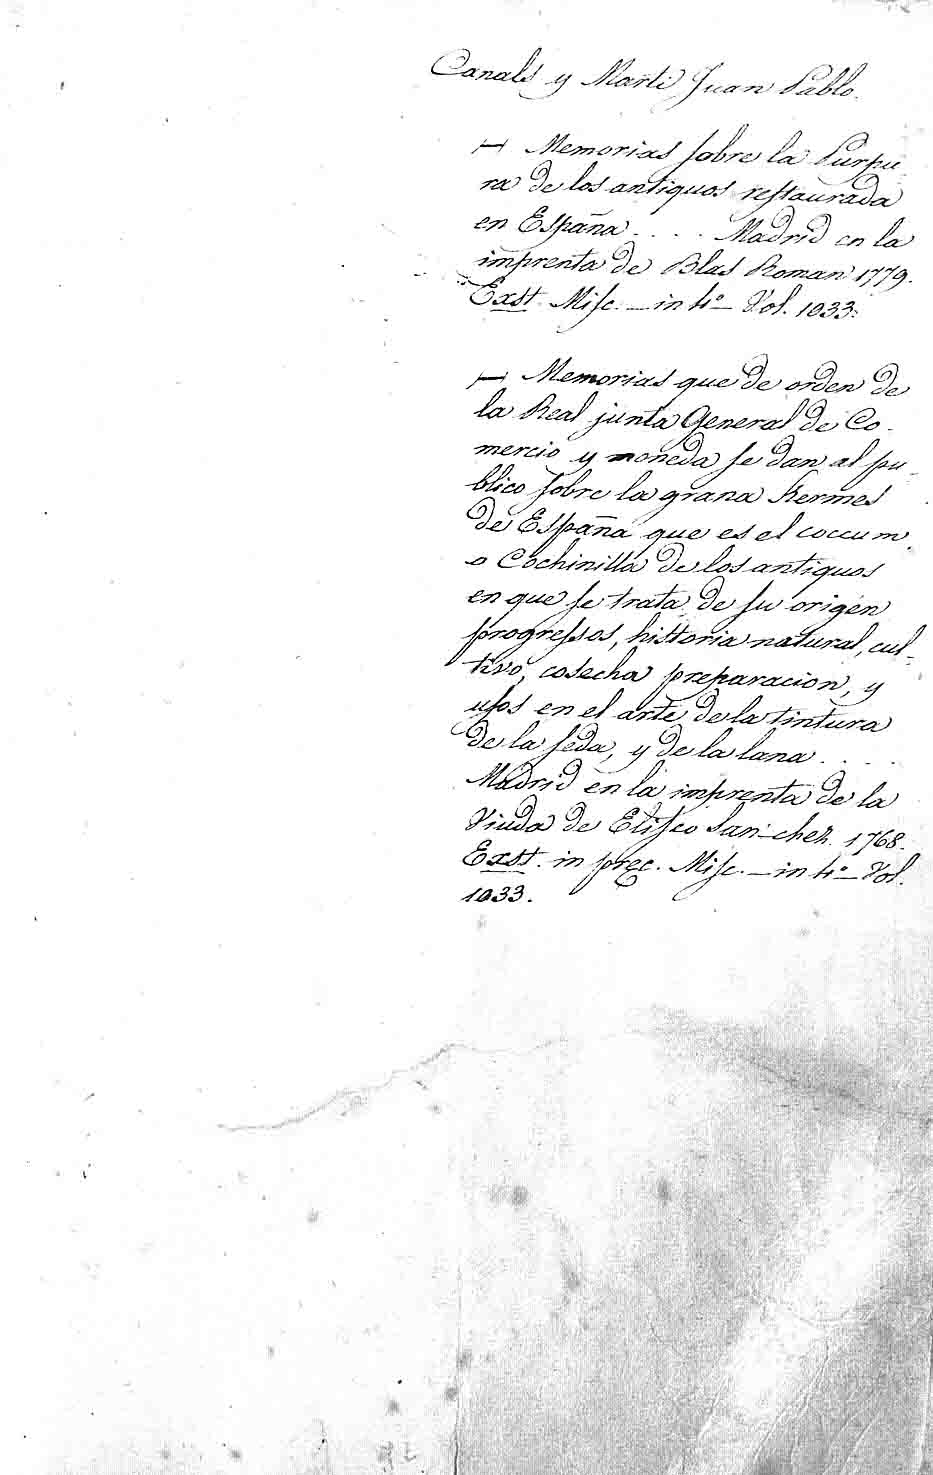 Canals y Marti Juan Pablo.
⊢ Memorias sobre la Purpu-
ra de los antiquos restaurada
en España .... Madrid en la
imprenta de Blas Roman 1779.
Exst. Misc. — in 4º — Vol. 1033.
⊢ Memorias que de orden de
la Real junta General de Co-
mercio y moneda se dan al pu-
blico sobre la grana Kermes
de España que es el coccum
o Cochinilla de los antiquos
en que se trata de su origen
progressos, historia natural, cul-
tivo, cosecha preparacion, y
usos en el arte de la tintura
de la seda, y de la lana ....
Madrid en la imprenta de la
Viuda de Eliseo San-chez. 1768.
Exst. in prec. Misc. — in 4º — Vol.
1033.